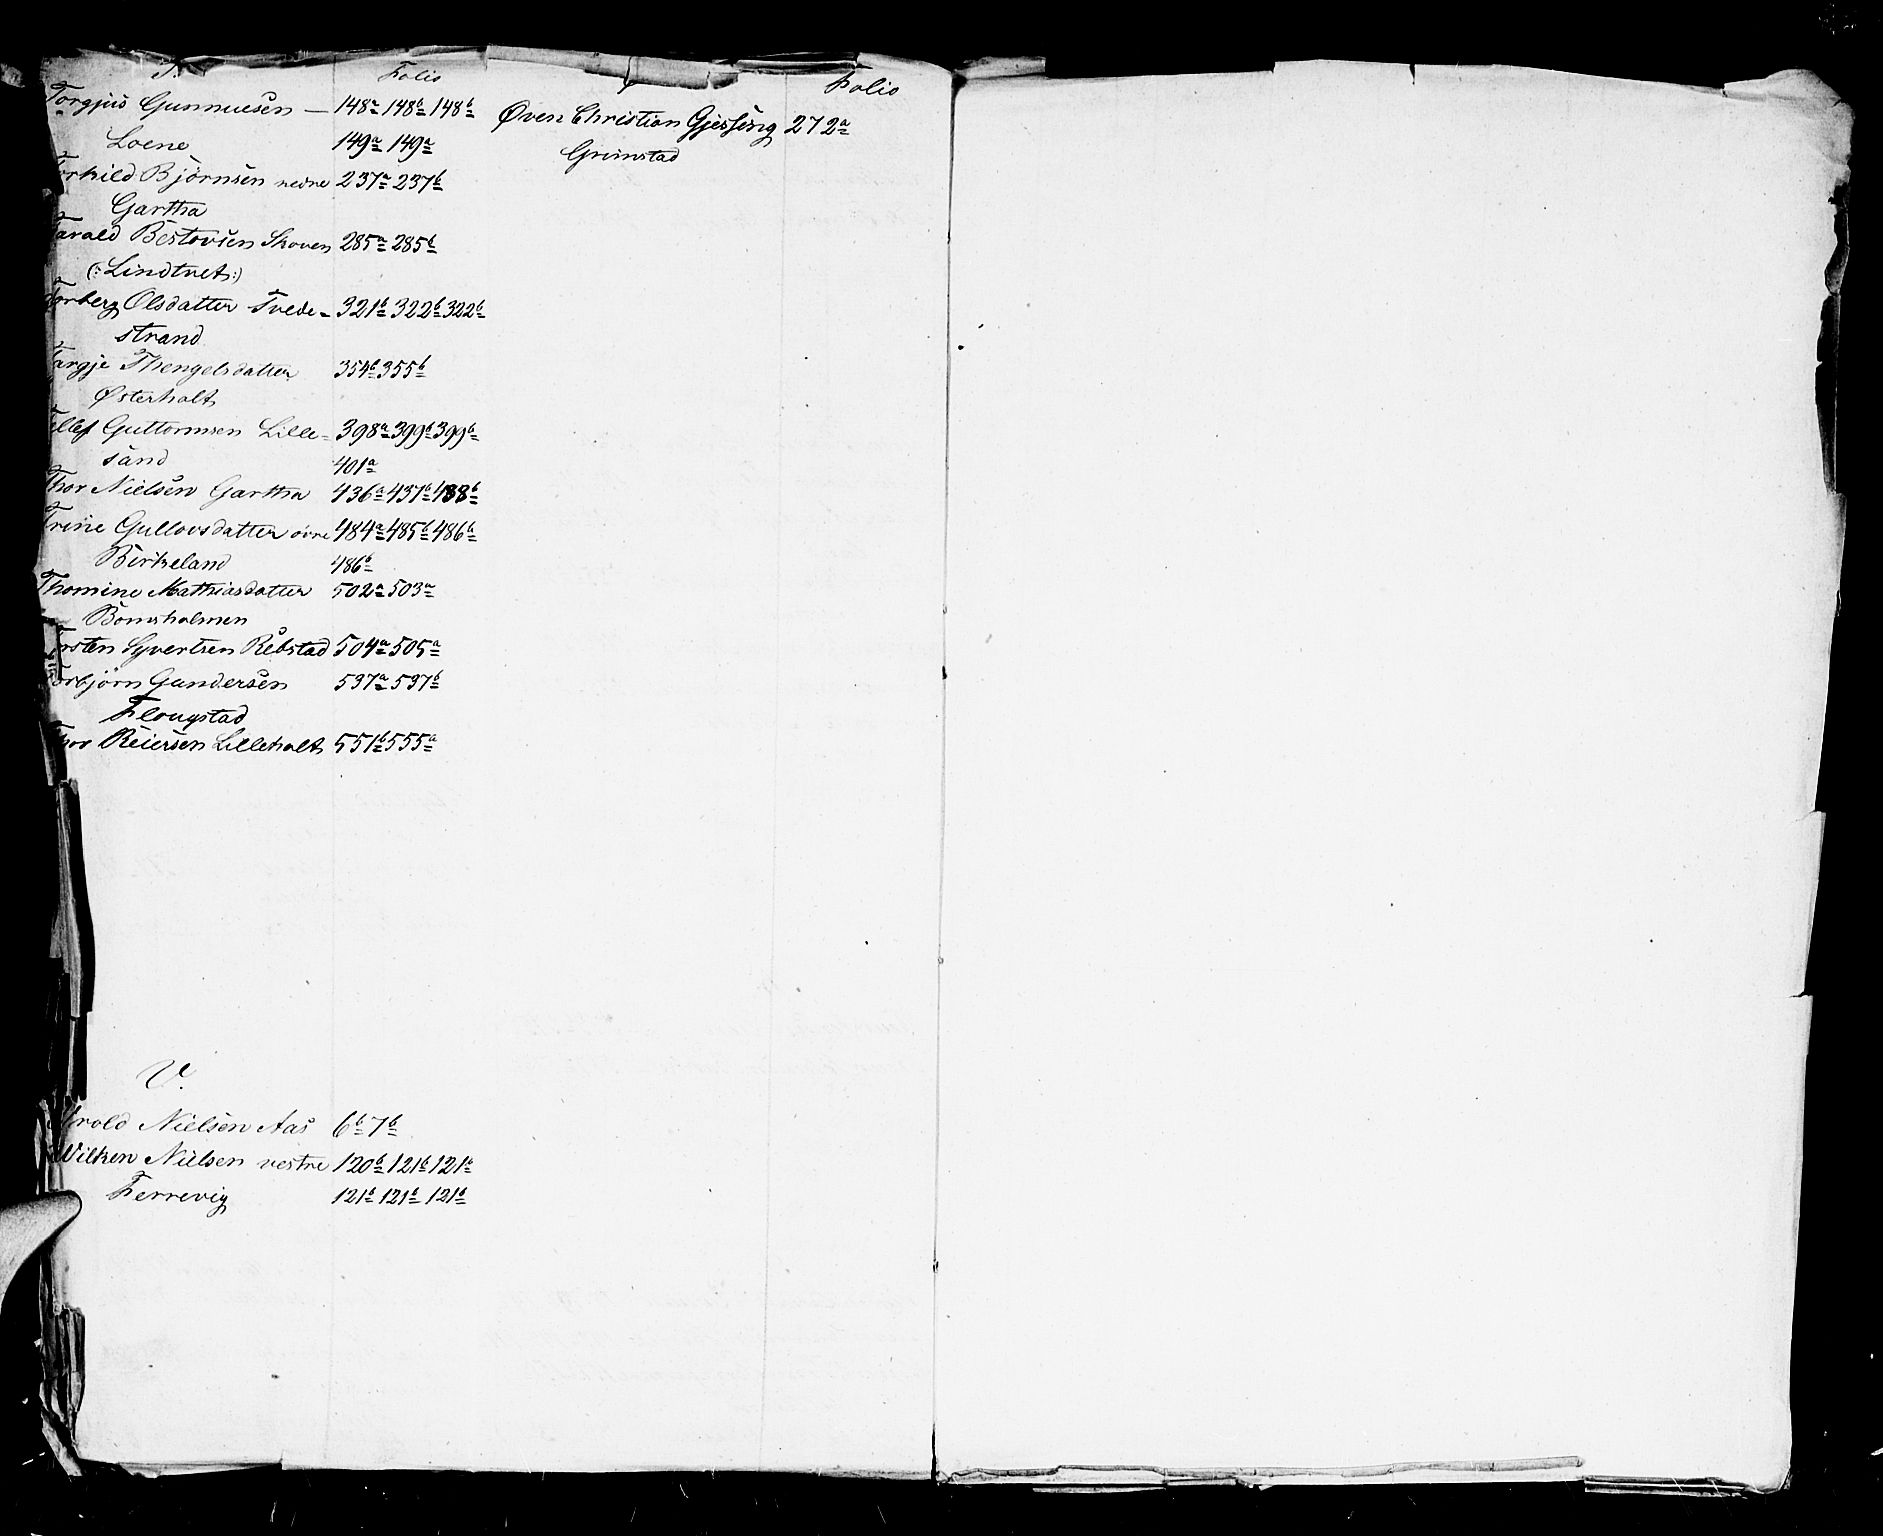 T. Folio
Torgjus Gunnuesen — 148a 148b 148b
Loene 149a 149a
Torkild Björnsen nedre 237a 237b
Gartha
Tarald Bestovsen Skoven 285a 285b
(: Lindtvet :)
Torberg Olsdatter Tvede- 321b 322b 322b
strand
Targje Thengelsdatter 354b 355b
Østerholt
Tellef Guttormsen Lille- 398a 399b 399b
sand 401a
Thor Nielsen Gartha 436a 437b 438b
Trine Gullovsdatter øvre 484a 485b 486b
Birkeland 486b
Thomine Mathiasdatter 502a 503a
Bomsholmen
Torsten Syvertsen Rebstad 504a 505a
Torbjörn Gundersen 537a 537b
Flougstad
Thor Reiersen Lilleholt 551b 555a
V.
Nielsen Aas 6b 7b
Wilken Nielsen vestre 120b 121b 121b
Ferrevig 121b 121b 121b
Folio
Øven Christian Gjessing 272a
Grimstad